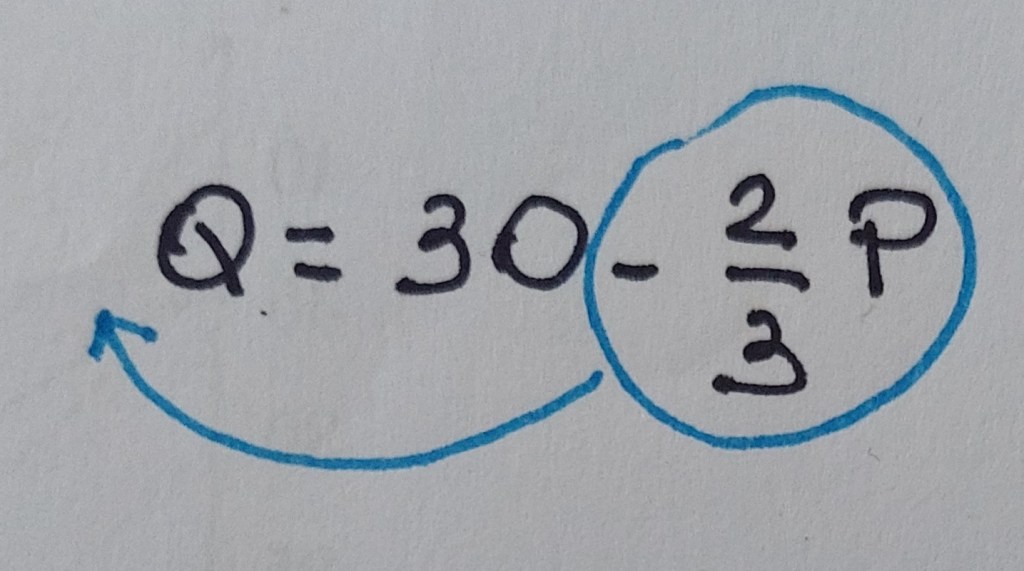 Q = 30 - \frac{2}{3} P